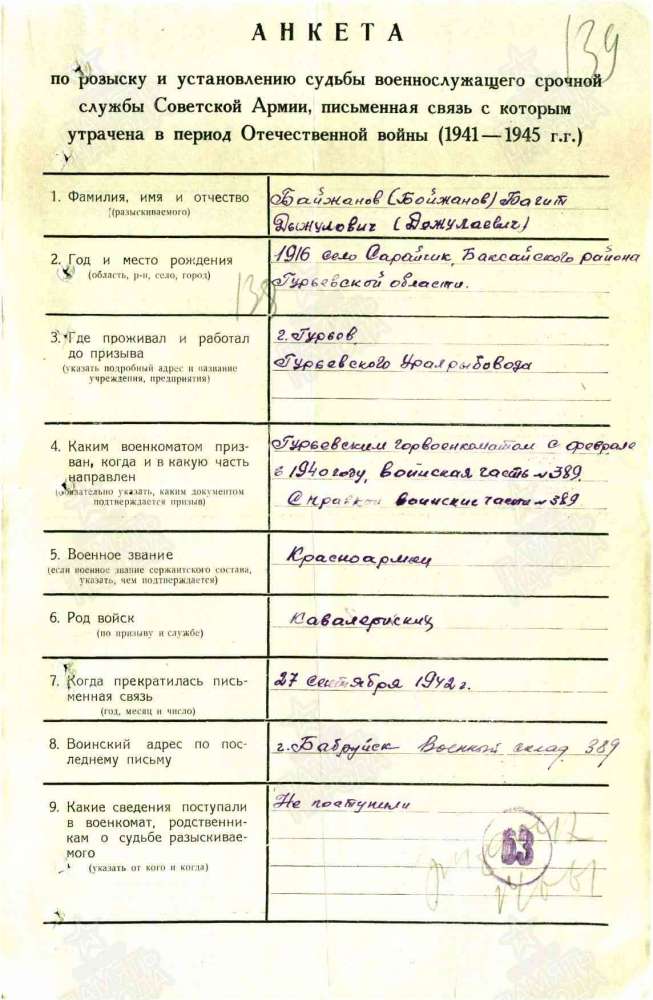 АНКЕТА
139
по розыску и установлению судьбы военнослужащего срочной
службы Советской Армии, письменная связь с которым
утрачена в период Отечественной войны (1941—1945 г.г.)
1. Фамилия, имя и отчество
(разыскиваемого)
Байжанов (Бойжанов) Багит
Дыжулович (Дяжулаевич)
2. Год и место рождения
(область, р-н, село, город)
1916 село Сарайчик, Баксайского района
Гурьевской области.
138
3. Где проживал и работал
до призыва
(указать подробный адрес и название
учреждения, предприятия)
г. Гурьев
Гурьевского Уралрыбовода
4. Каким военкоматом приз-
ван, когда и в какую часть
направлен
(обязательно указать, каким документом
подтверждается призыв)
Гурьевским горвоенкоматом с феврале
в 1940 году, Воинская часть № 389.
Справкой воинские части № 389
5. Военное звание
(если военное звание сержантского состава,
указать, чем подтверждается)
Красноармеи
6. Род войск
(по призыву и службе)
Кавалерийскиц
7. Когда прекратилась пись-
менная связь
(год, месяц и число)
27 сентября 1942 г.
8. Воинский адрес по пос-
леднему письму
г. Бабруйск Военный склад 389
9. Какие сведения поступали
в военкомат, родственни-
кам о судьбе разыскивае-
мого
(указать от кого и когда)
Не поступили
63